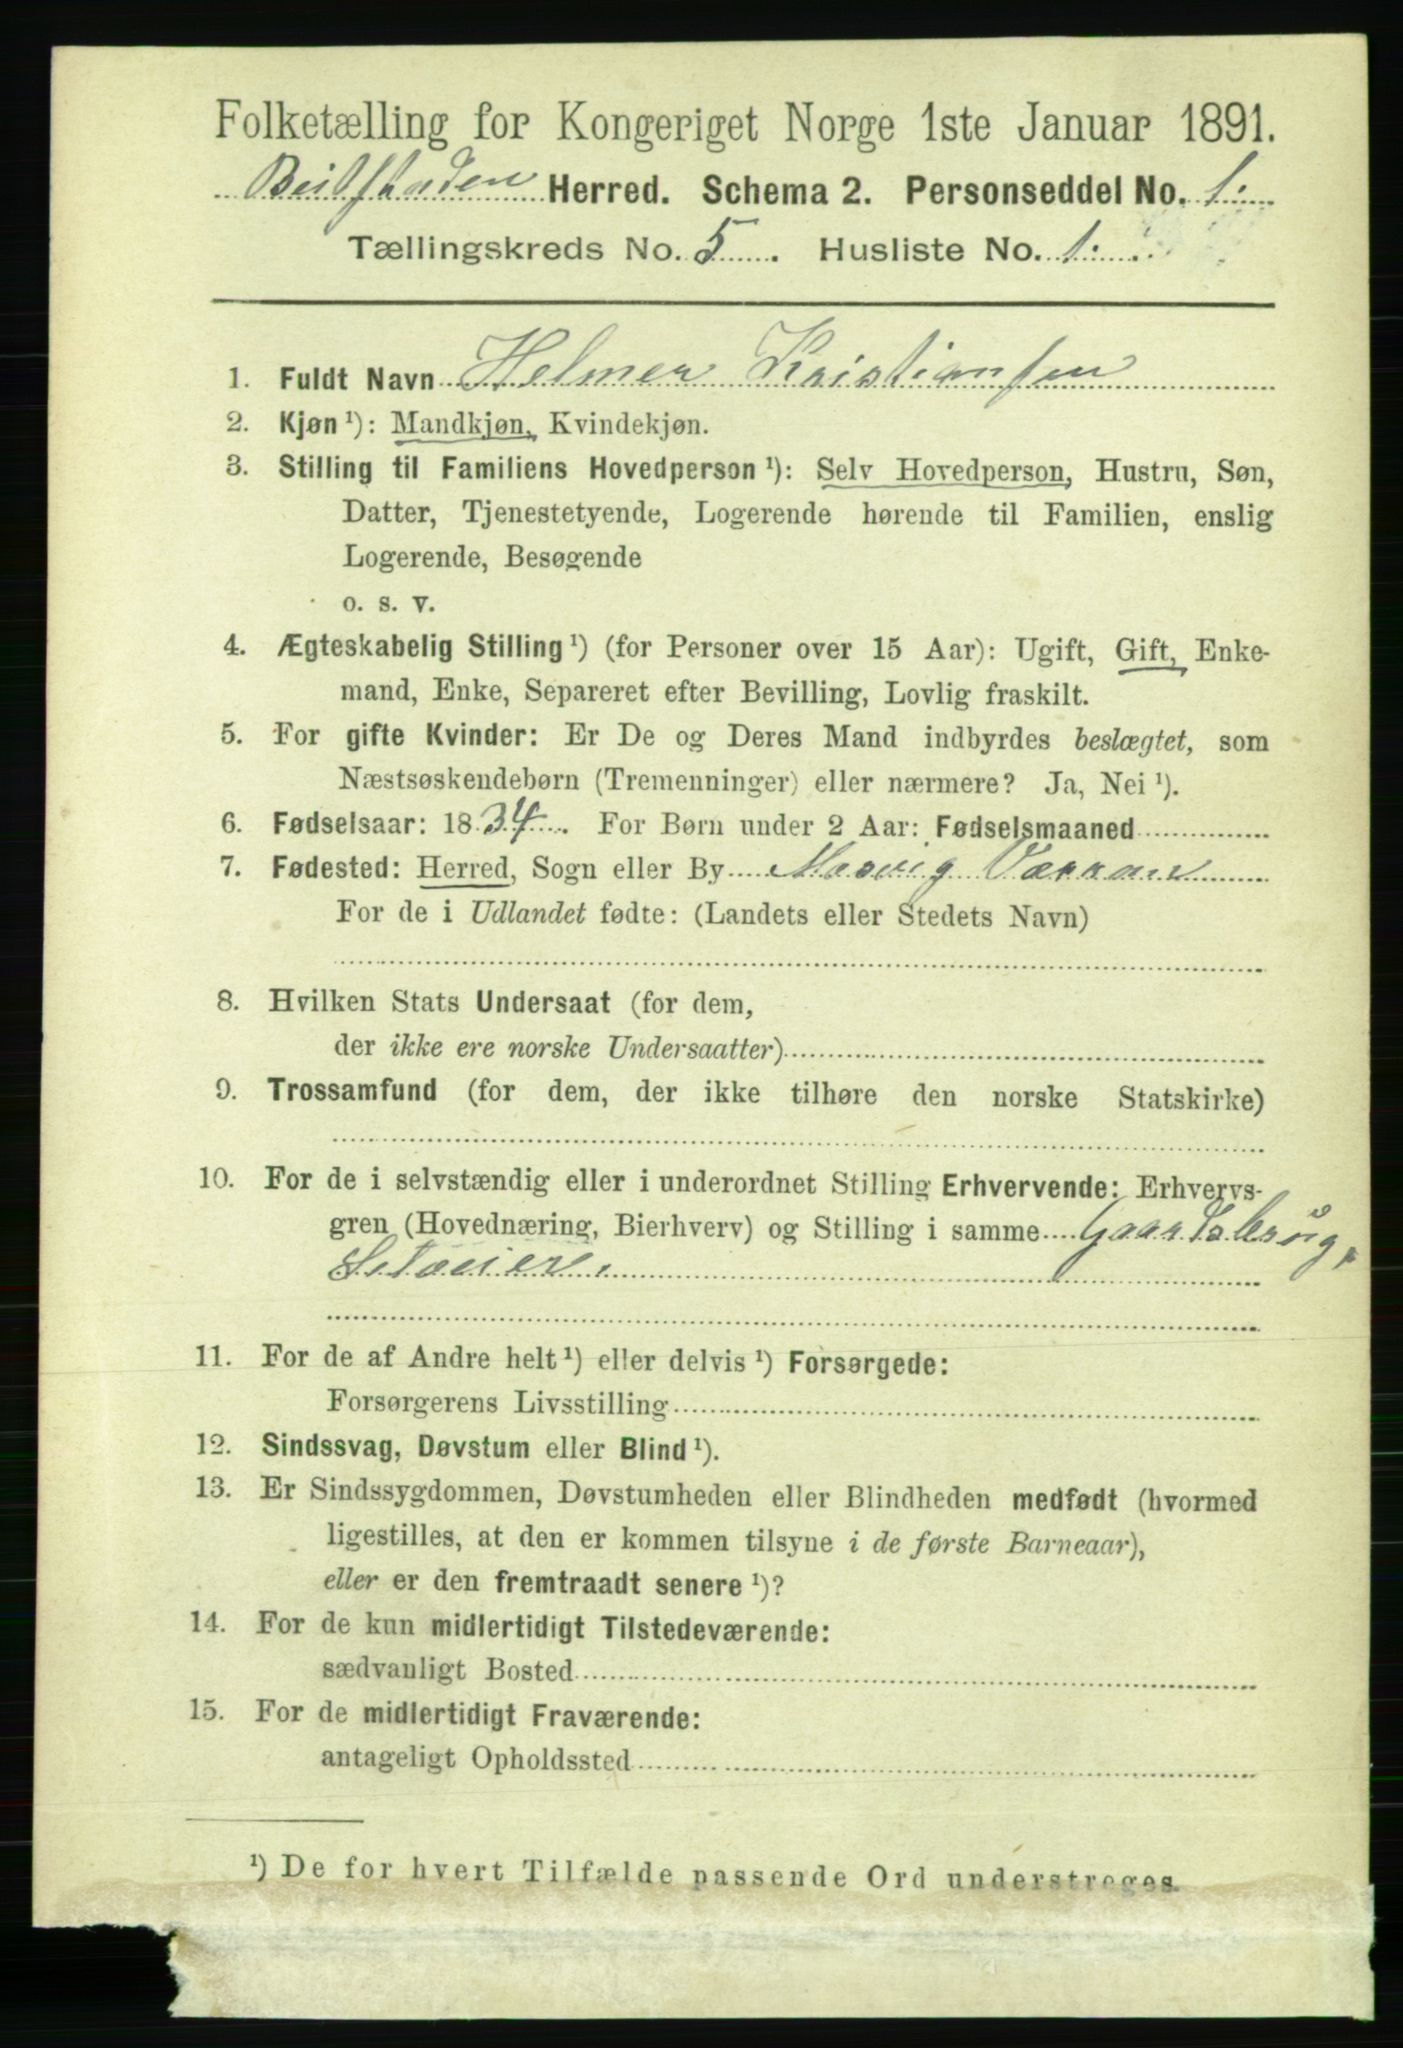 Folketælling for Kongeriget Norge 1ste Januar 1891.
Beitstaden Herred. Schema 2. Personseddel No. 1.
Tællingskreds No. 5. Husliste No. 1.
1. Fuldt Navn Helmer Kristiansen
2. Kjøn ¹): Mandkjøn, Kvindekjøn.
3. Stilling til Familiens Hovedperson ¹): Selv Hovedperson, Hustru, Søn,
Datter, Tjenestetyende, Logerende hørende til Familien, enslig
Logerende, Besøgende
o. s. v.
4. Ægteskabelig Stilling ¹) (for Personer over 15 Aar): Ugift, Gift, Enke-
mand, Enke, Separeret efter Bevilling, Lovlig fraskilt.
5. For gifte Kvinder: Er De og Deres Mand indbyrdes beslægtet, som
Næstsøskendebørn (Tremenninger) eller nærmere? Ja, Nei ¹).
6. Fødselsaar: 1834. For Børn under 2 Aar: Fødselsmaaned
7. Fødested: Herred, Sogn eller By Mosvig
For de i Udlandet fødte: (Landets eller Stedets Navn)
8. Hvilken Stats Undersaat (for dem,
der ikke ere norske Undersaatter)
9. Trossamfund (for dem, der ikke tilhøre den norske Statskirke)
10. For de i selvstændig eller i underordnet Stilling Erhvervende: Erhvervs-
gren (Hovednæring, Bierhverv) og Stilling i samme Gaardsbrug,
Selveier.
11. For de af Andre helt ¹) eller delvis ¹) Forsørgede:
Forsørgerens Livsstilling
12. Sindssvag, Døvstum eller Blind ¹).
13. Er Sindssygdommen, Døvstumheden eller Blindheden medfødt (hvormed
ligestilles, at den er kommen tilsyne i de første Barneaar),
eller er den fremtraadt senere ¹)?
14. For de kun midlertidigt Tilstedeværende:
sædvanligt Bosted
15. For de midlertidigt Fraværende:
antageligt Opholdssted
¹) De for hvert Tilfælde passende Ord understreges.